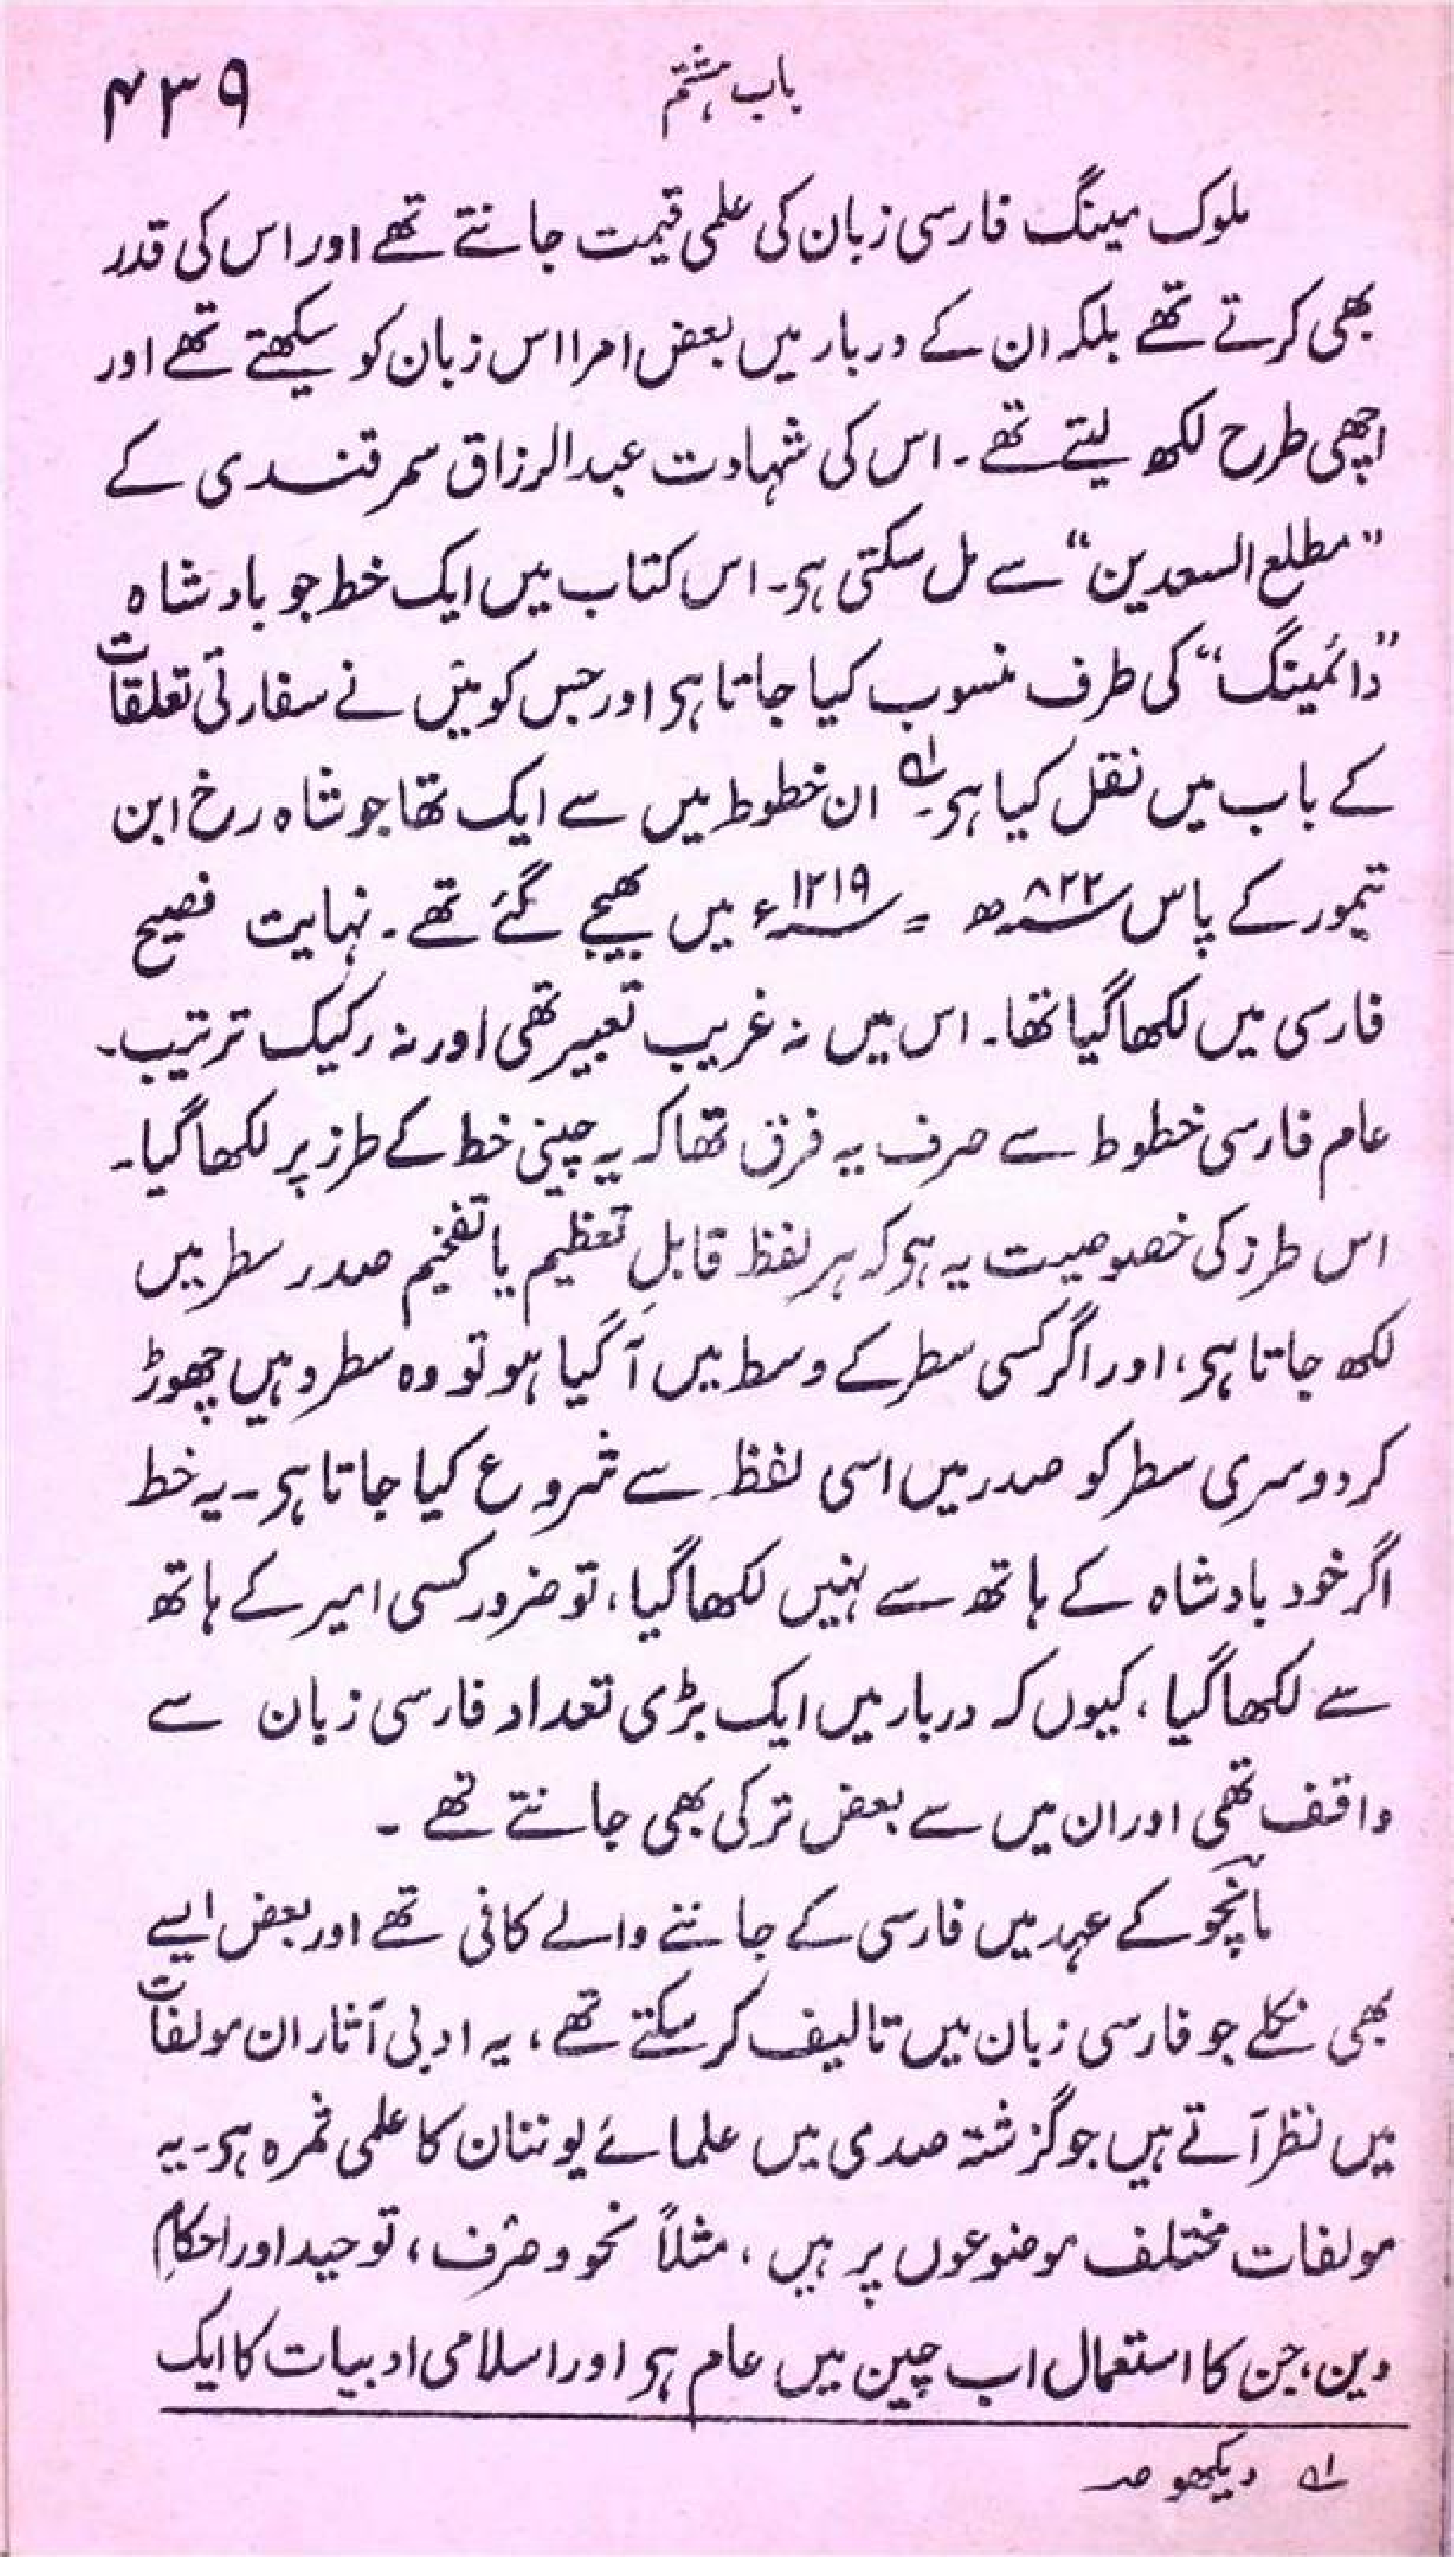 باب ہشتم ۴۳۹
ملوک مینگ فارسی زبان کی علمی قیمت جانتے تھے اور اس کی قدر
بھی کرتے تھے بلکہ ان کے دربار میں بعض امرا اس زبان کو سیکھتے تھے اور
اچھی طرح لکھ لیتے تھے۔ اس کی شہادت عبدالرزاق سمرقندی کے
”مطلع السعدین“ سے مل سکتی ہی۔ اس کتاب میں ایک خط جو بادشاہ
”دائمینگ“ کی طرف منسوب کیا جاتا ہی اور جس کو میں نے سفارتی تعلقات
کے باب میں نقل کیا ہی۔ لہ ان خطوط میں سے ایک تھا جو شاہ رخ ابن
تیمور کے پاس ۸۲۲ھ = ۱۲۱۹ء میں بھیجے گئے تھے۔ نہایت فصیح
فارسی میں لکھا گیا تھا۔ اس میں نہ غریب تعبیر تھی اور نہ رکیک ترتیب۔
عام فارسی خطوط سے صرف یہ فرق تھا کہ یہ چینی خط کے طرز پر لکھا گیا۔
اس طرز کی خصوصیت یہ ہی کہ ہر لفظ قابلِ تعظیم یا تفخیم صدر سطر میں
لکھ جاتا ہی، اور اگر کسی سطر کے وسط میں آ گیا ہو تو وہ سطر وہیں چھوڑ
کر دوسری سطر کو صدر میں اسی لفظ سے شروع کیا جاتا ہی۔ یہ خط
اگر خود بادشاہ کے ہاتھ سے نہیں لکھا گیا، تو ضرور کسی امیر کے ہاتھ
سے لکھا گیا، کیوں کہ دربار میں ایک بڑی تعداد فارسی زبان سے
واقف تھی اور ان میں سے بعض ترکی بھی جانتے تھے۔
مانچو کے عہد میں فارسی کے جاننے والے کافی تھے اور بعض ایسے
بھی نکلے جو فارسی زبان میں تالیف کر سکتے تھے، یہ ادبی آثار ان مولفات
میں نظر آتے ہیں جو گزشتہ صدی میں علمائے یوننان کا علمی ثمرہ ہی۔ یہ
مولفات مختلف موضوعوں پر ہیں، مثلاً نحو و صرف، توحید اور احکامِ
دین، جن کا استعمال اب چین میں عام ہی اور اسلامی ادبیات کا ایک
لہ دیکھو صـ